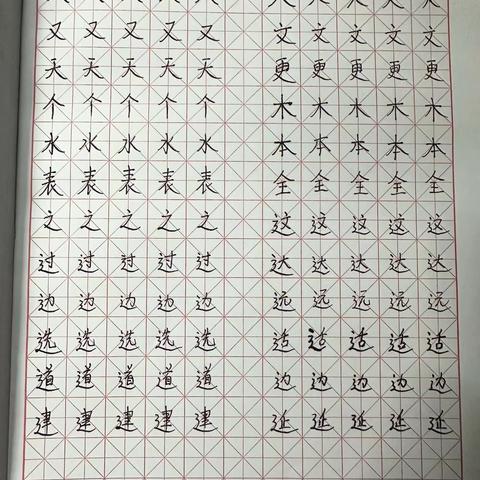 又又又又又 文文文文文
天天天天天 更更更更更
个个个个个 木木木木木
水水水水水 本本本本本
表表表表表 全全全全全
之之之之之 这这这这这
过过过过过 达达达达达
边边边边边 远远远远远
选选选选选 适适适适适
道道道道道 边边边边边
建建建建建 延延延延延